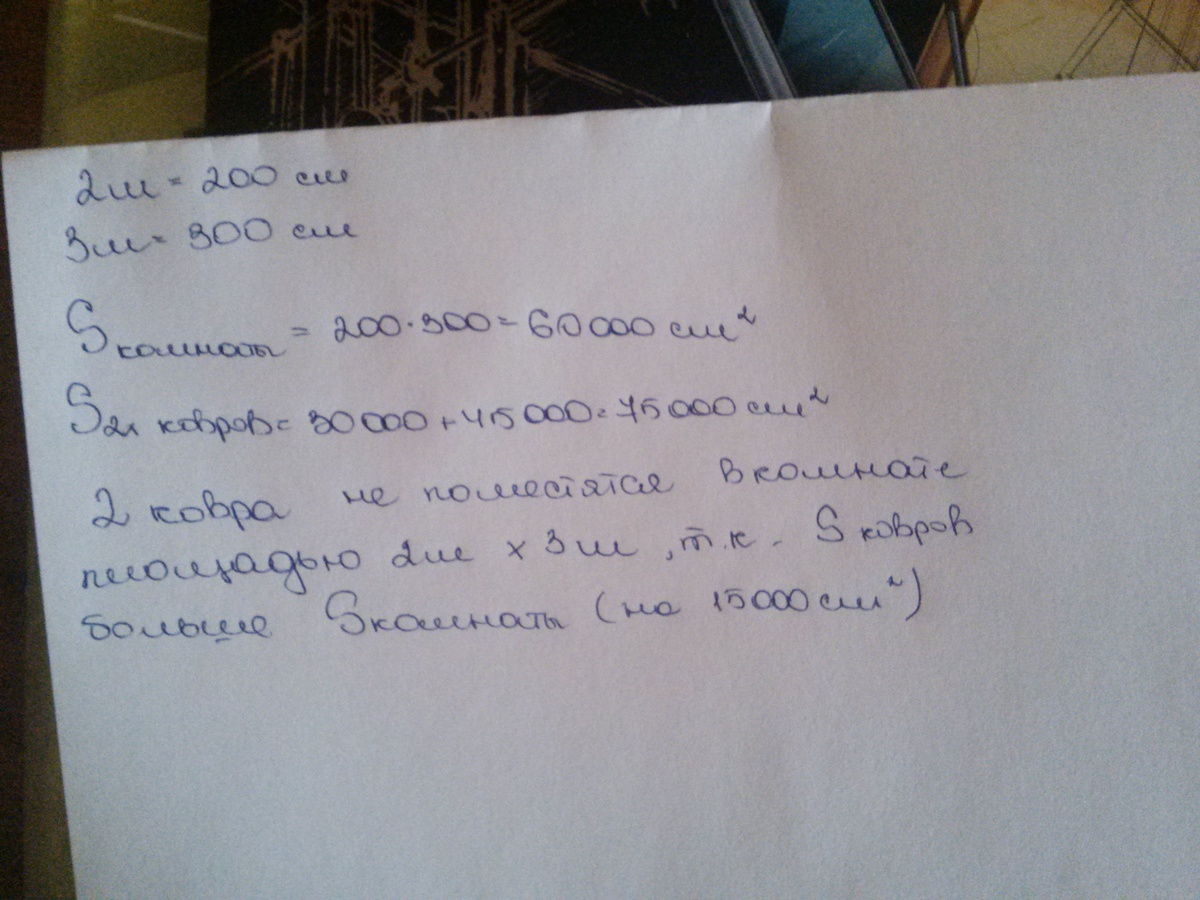 2м = 200 см
3м = 300 см
Sкомнаты = 200·300 = 60000 см²
S2х ковров = 30000 + 45000 = 75000 см²
2 ковра не поместятся в комнате
площадью 2м х 3м, т.к. S ковров
больше Sкомнаты (на 15000 см²)